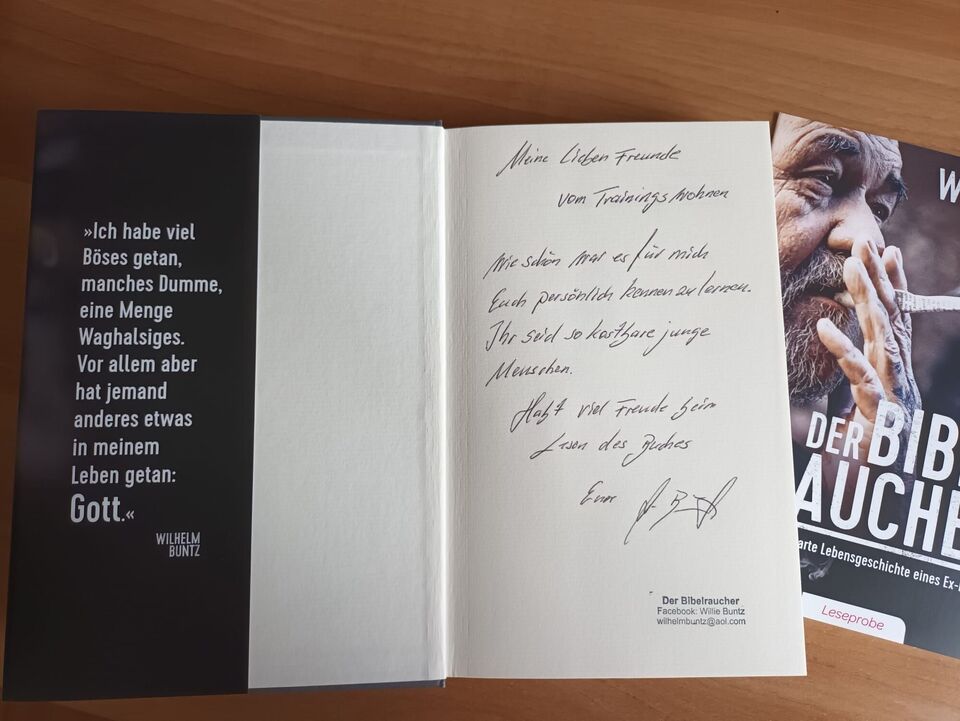 »Ich habe viel
Böses getan,
manches Dumme,
eine Menge
Waghalsiges.
Vor allem aber
hat jemand
anderes etwas
in meinem
Leben getan:
Gott.«
WILHELM
BUNTZ
Meine Lieben Freunde
vom Trainingswohnen
Wie schön war es für mich
Euch persönlich kennen zu lernen.
Ihr seid so kostbare junge
Menschen.
Habt viel Freude beim
Lesen des Buches
Euer
Der Bibelraucher
Facebook: Willie Buntz
wilhelmbuntz@aol.com
W
DER BIB
AUCHE
arte Lebensgeschichte eines Ex-
Leseprobe